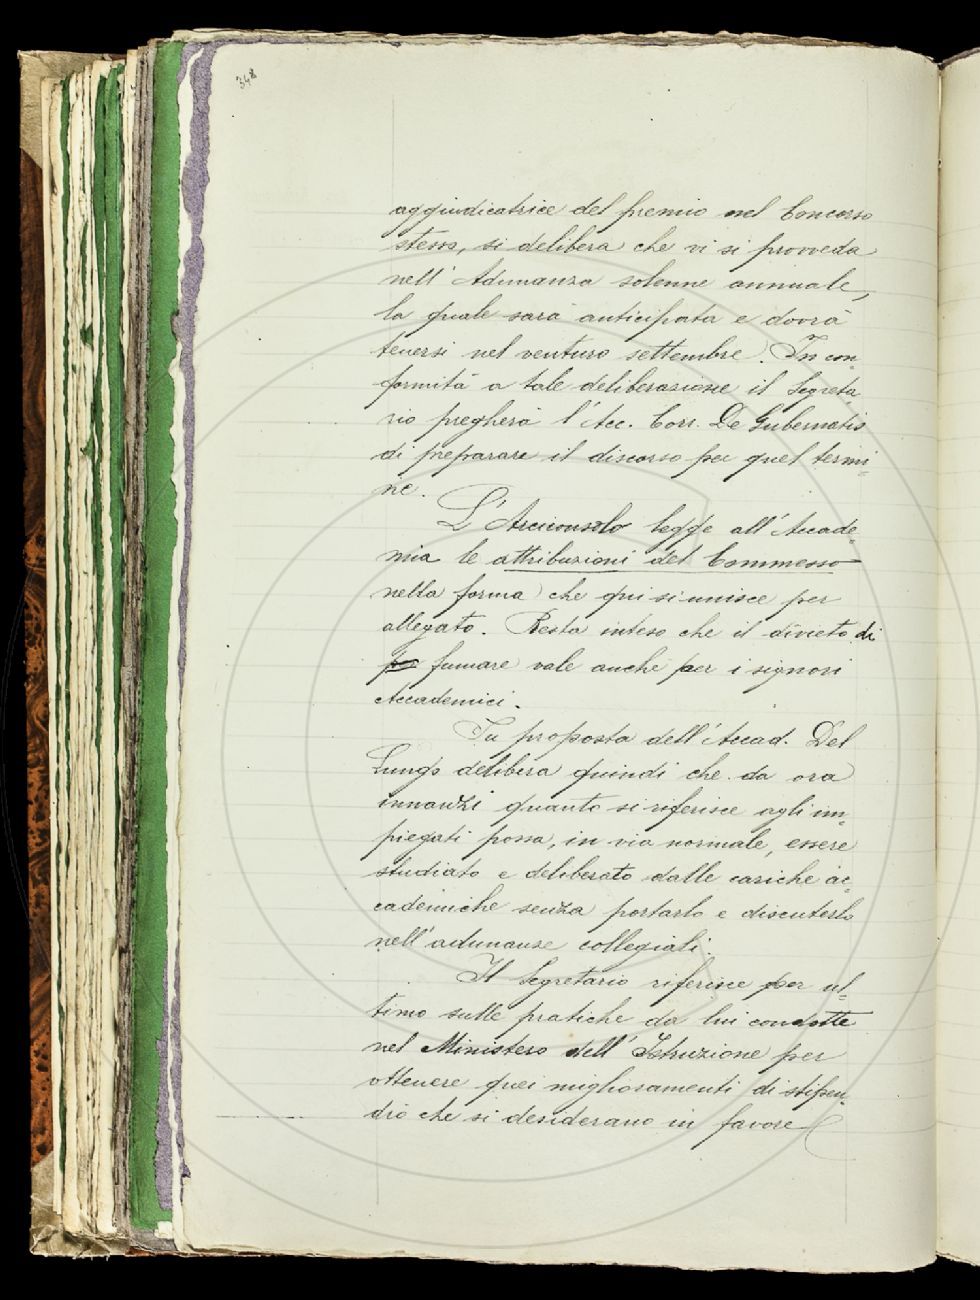 348
aggiudicatrice del premio nel Concorso
stesso, si delibera che vi si provveda
nell'Adunanza solenne annuale,
la quale sarà anticipata e dovrà
tenersi nel venturo settembre. In con
formità a tale deliberazione il Segreta
rio pregherà l'Acc. Corr. De Gubernatis
di preparare il discorso per quel termi=
ne.
L'Arciconsolo legge all'Accade=
mia le attribuzioni del Commesso
nella forma che qui si unisce per
allegato. Resta inteso che il divieto di
fumare vale anche per i signori
Accademici.
Su proposta dell'Accad. Del
Lungo delibera quindi che da ora
innanzi quanto si riferisce agli im=
piegati possa, in via normale, essere
studiato e deliberato dalle cariche ac=
cademiche senza portarlo e discuterlo
nell'adunanze collegiali.
Il Segretario riferisce per ul=
timo sulle pratiche da lui condotte
nel Ministero dell'Istruzione per
ottenere quei miglioramenti di stipen=
dio che si desiderano in favore